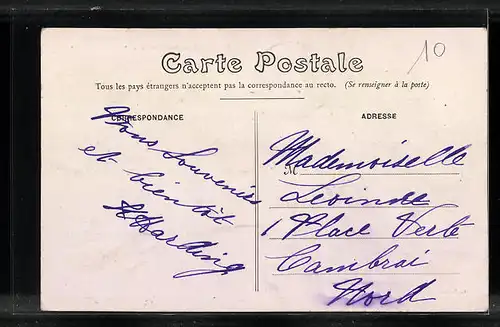 10
Carte Postale
Tous les pays étrangers n'acceptent pas la correspondance au recto. (Se renseigner à la poste)
CORRESPONDANCE
Bons Souvenirs
et bientôt
H Harding
ADRESSE
M
Mademoiselle
Levinde
1 Place Verte
Cambrai
Nord